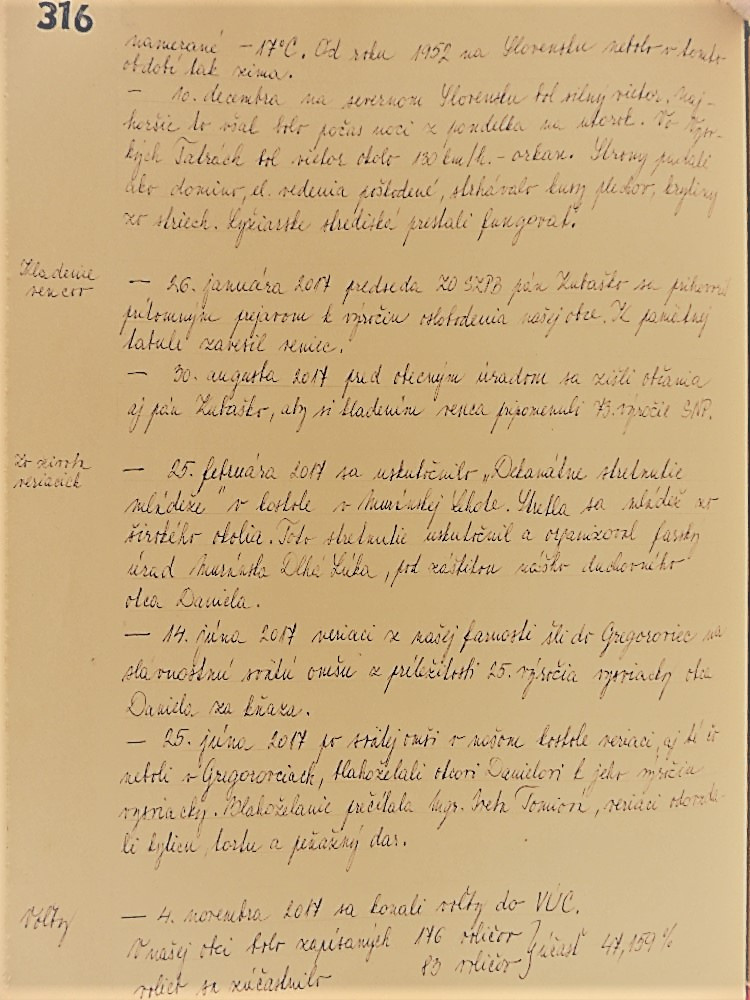 316
namerané -17°C. Od roku 1952 na Slovensku nebolo v tomto
období tak zima.
- 10. decembra na severnom Slovensku bol silný vietor. Naj-
horšie to však bolo počas noci z pondelka na utorok. Vo Vyso-
kých Tatrách bol vietor okolo 130 km/h. - orkán. Stromy padali
ako domino, el. vedenia poškodené, strhávalo kusy plechov, krytiny
zo striech. Lyžiarske strediská prestali fungovať.
Kladenie
vencov
- 26. januára 2017 predseda ZO SZPB pán Lubaško sa prihovoril
prítomným prejavom k výročiu oslobodenia našej obce. K pamätnej
tabuli zavesil veniec.
- 30. augusta 2017 pred obecným úradom sa zišli občania
aj pán Lubaško, aby si kladením venca pripomenuli 73. výročie SNP.
Zo života
veriacich
- 25. februára 2017 sa uskutočnilo „Dekanátne stretnutie
mládeže" v kostole v Muránskej Lehote. Stretla sa mládež zo
širokého okolia. Toto stretnutie uskutočnil a organizoval farský
úrad Muránska Dlhá Lúka, pod záštitou nášho duchovného
otca Daniela.
- 14. júna 2017 veriaci z našej farnosti šli do Gregoroviec na
slávnostnú svätú omšu z príležitosti 25. výročia vysviacky otca
Daniela za kňaza.
- 25. júna 2017 po svätej omši v našom kostole veriaci, aj tí čo
neboli v Gregorovciach, blahoželali otcovi Danielovi k jeho výročiu
vysviacky. Blahoželanie prečítala Mgr. Iveta Tomiová, veriaci odovzda-
li kyticu, tortu a peňažný dar.
Voľby
- 4. novembra 2017 sa konali voľby do VÚC.
V našej obci bolo zapísaných 176 voličov
účasť 47,159 %
volieb sa zúčastnilo 83 voličov